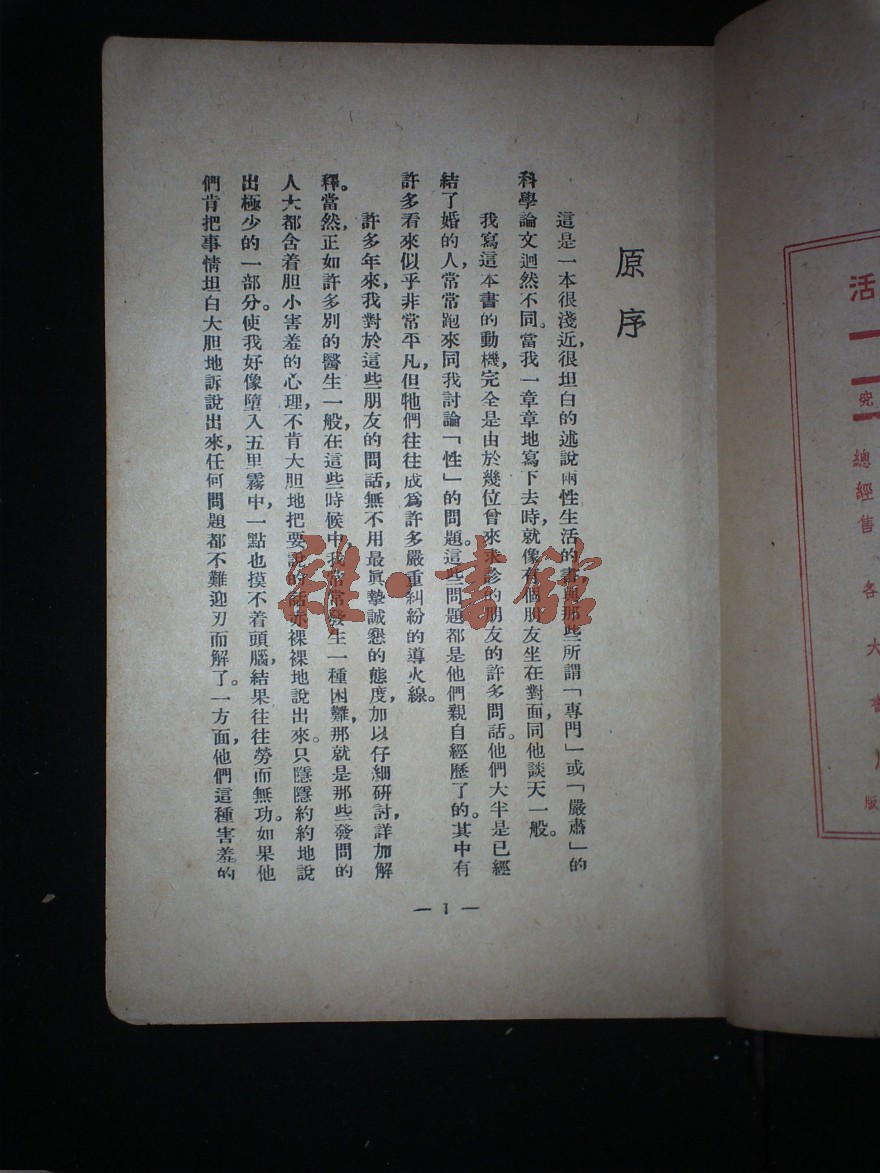 原序
這是一本很淺近,很坦白的述說兩性生活的書,與那些所謂「專門」或「嚴肅」的
科學論文迥然不同。當我一章章地寫下去時,就像有個朋友坐在對面,同他談天一般。
我寫這本書的動機,完全是由於幾位曾來求診的朋友的許多問話。他們大半是已經
結了婚的人,常常跑來同我討論「性」的問題。這些問題都是他們親自經歷了的。其中有
許多看來似乎非常平凡,但牠們往往成爲許多嚴重糾紛的導火線。
許多年來,我對於這些朋友的問話,無不用最眞摯誠懇的態度,加以仔細研討,詳加解
釋。當然,正如許多別的醫生一般,在這些時候中,我常常發生一種困難,那就是那些發問的
人大都含着胆小害羞的心理,不肯大胆地把要說的話赤裸裸地說出來。只隱隱約約地說
出極少的一部分。使我好像墮入五里霧中,一點也摸不着頭腦,結果往往勞而無功。如果他
們肯把事情坦白大胆地訴說出來,任何問題都不難迎刃而解了。一方面,他們這種害羞的
— 1 —
雜·書館
活
究
總經售
各大書
版